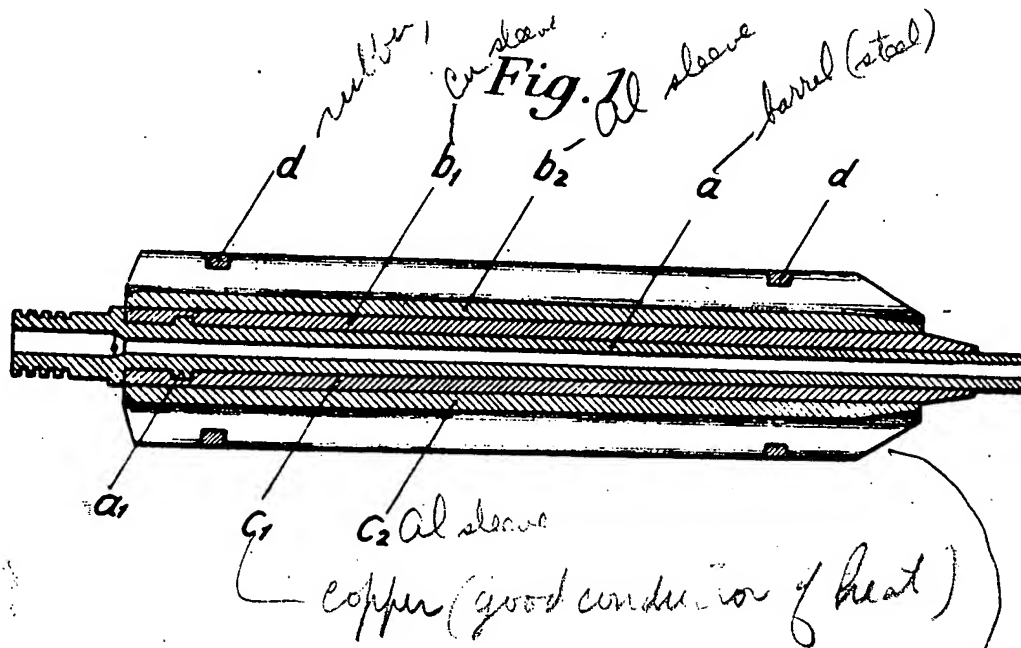 rubber,
Cu sleeve
Fig. 1
Al sleeve
barrel (steel)
d
b₁
b₂
a
d
a₁
c₁
c₂ Al sleeve
copper (good conductor of heat)